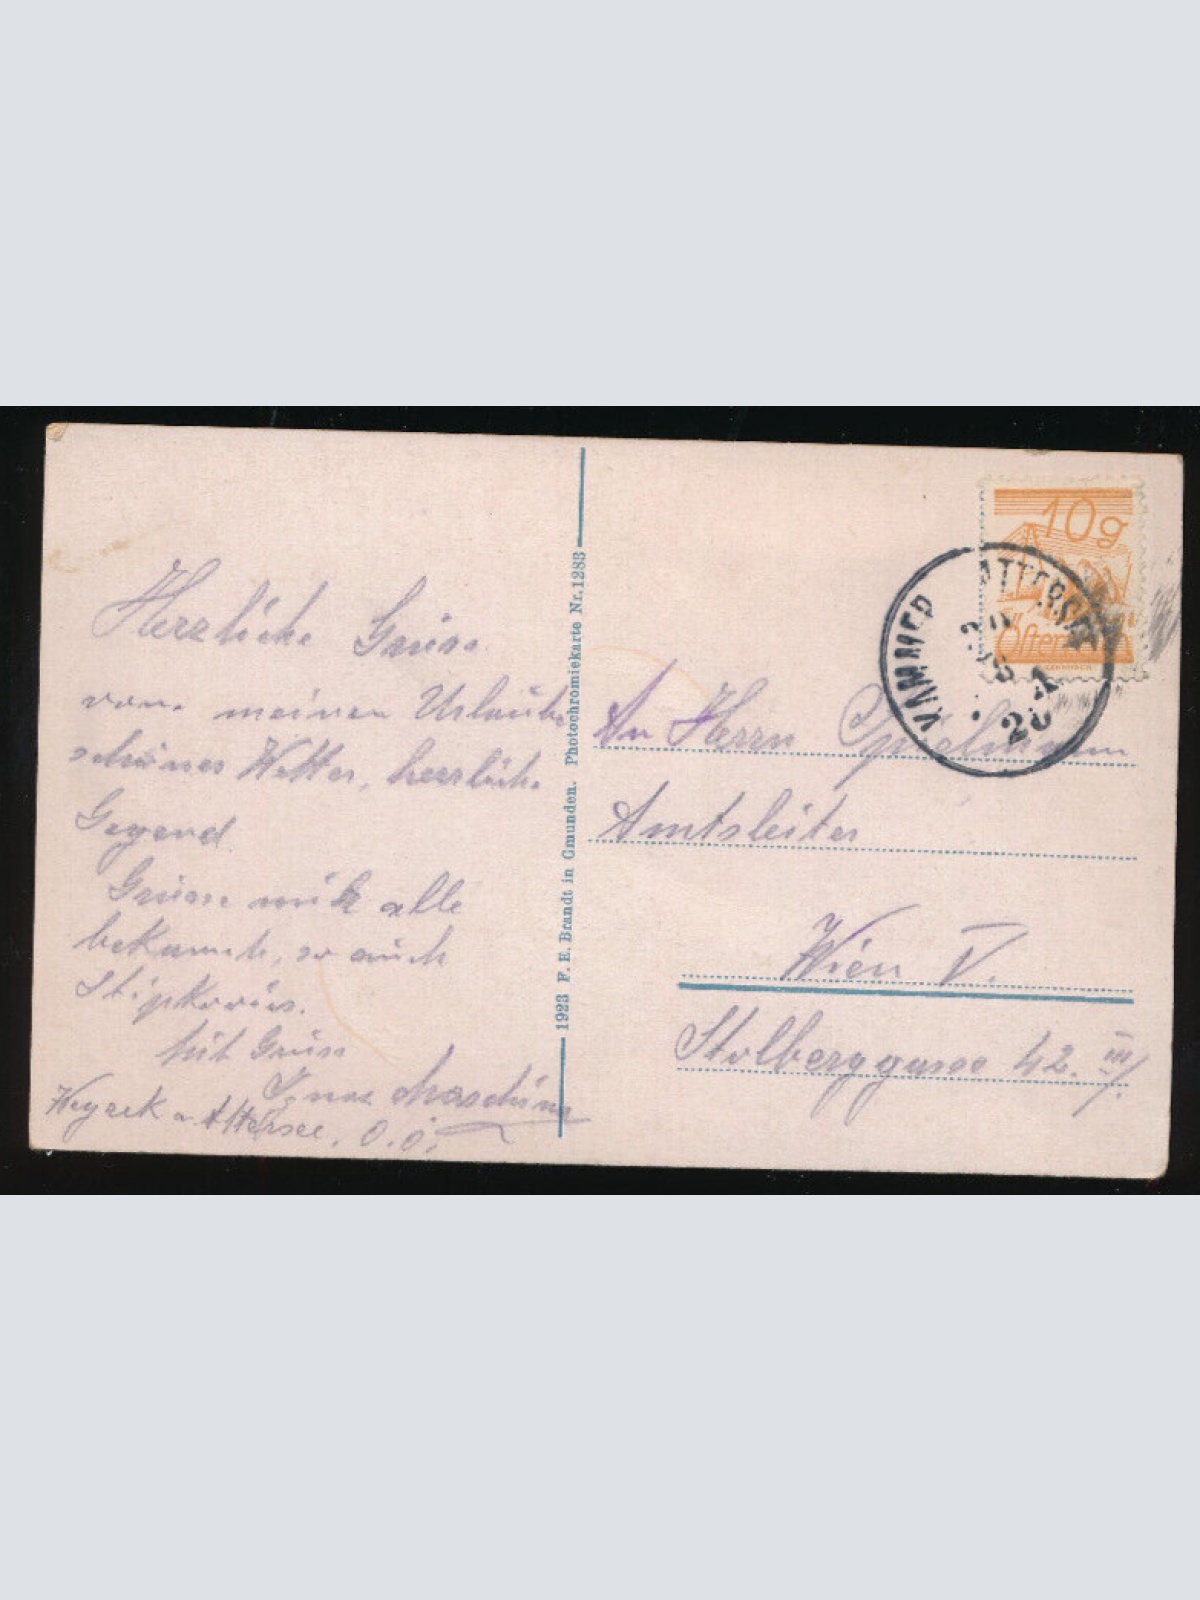 Herzliche Grüsse
von meinen Urlaube
schönes Wetter, herrliche
Gegend
Grüsse mir alle
bekannte, so auch
Stipkovics.
Mit Gruss
Ignaz
Weyreck a. Attersee. O.Ö.
1923 F. E. Brandt in Gmunden. Photochromiekarte Nr. 1283
10g
Österreich
KAMMER ATTERSEE
An Herrn Spielmann
Amtsleiter
Wien V.
Stolberggasse 42. III/